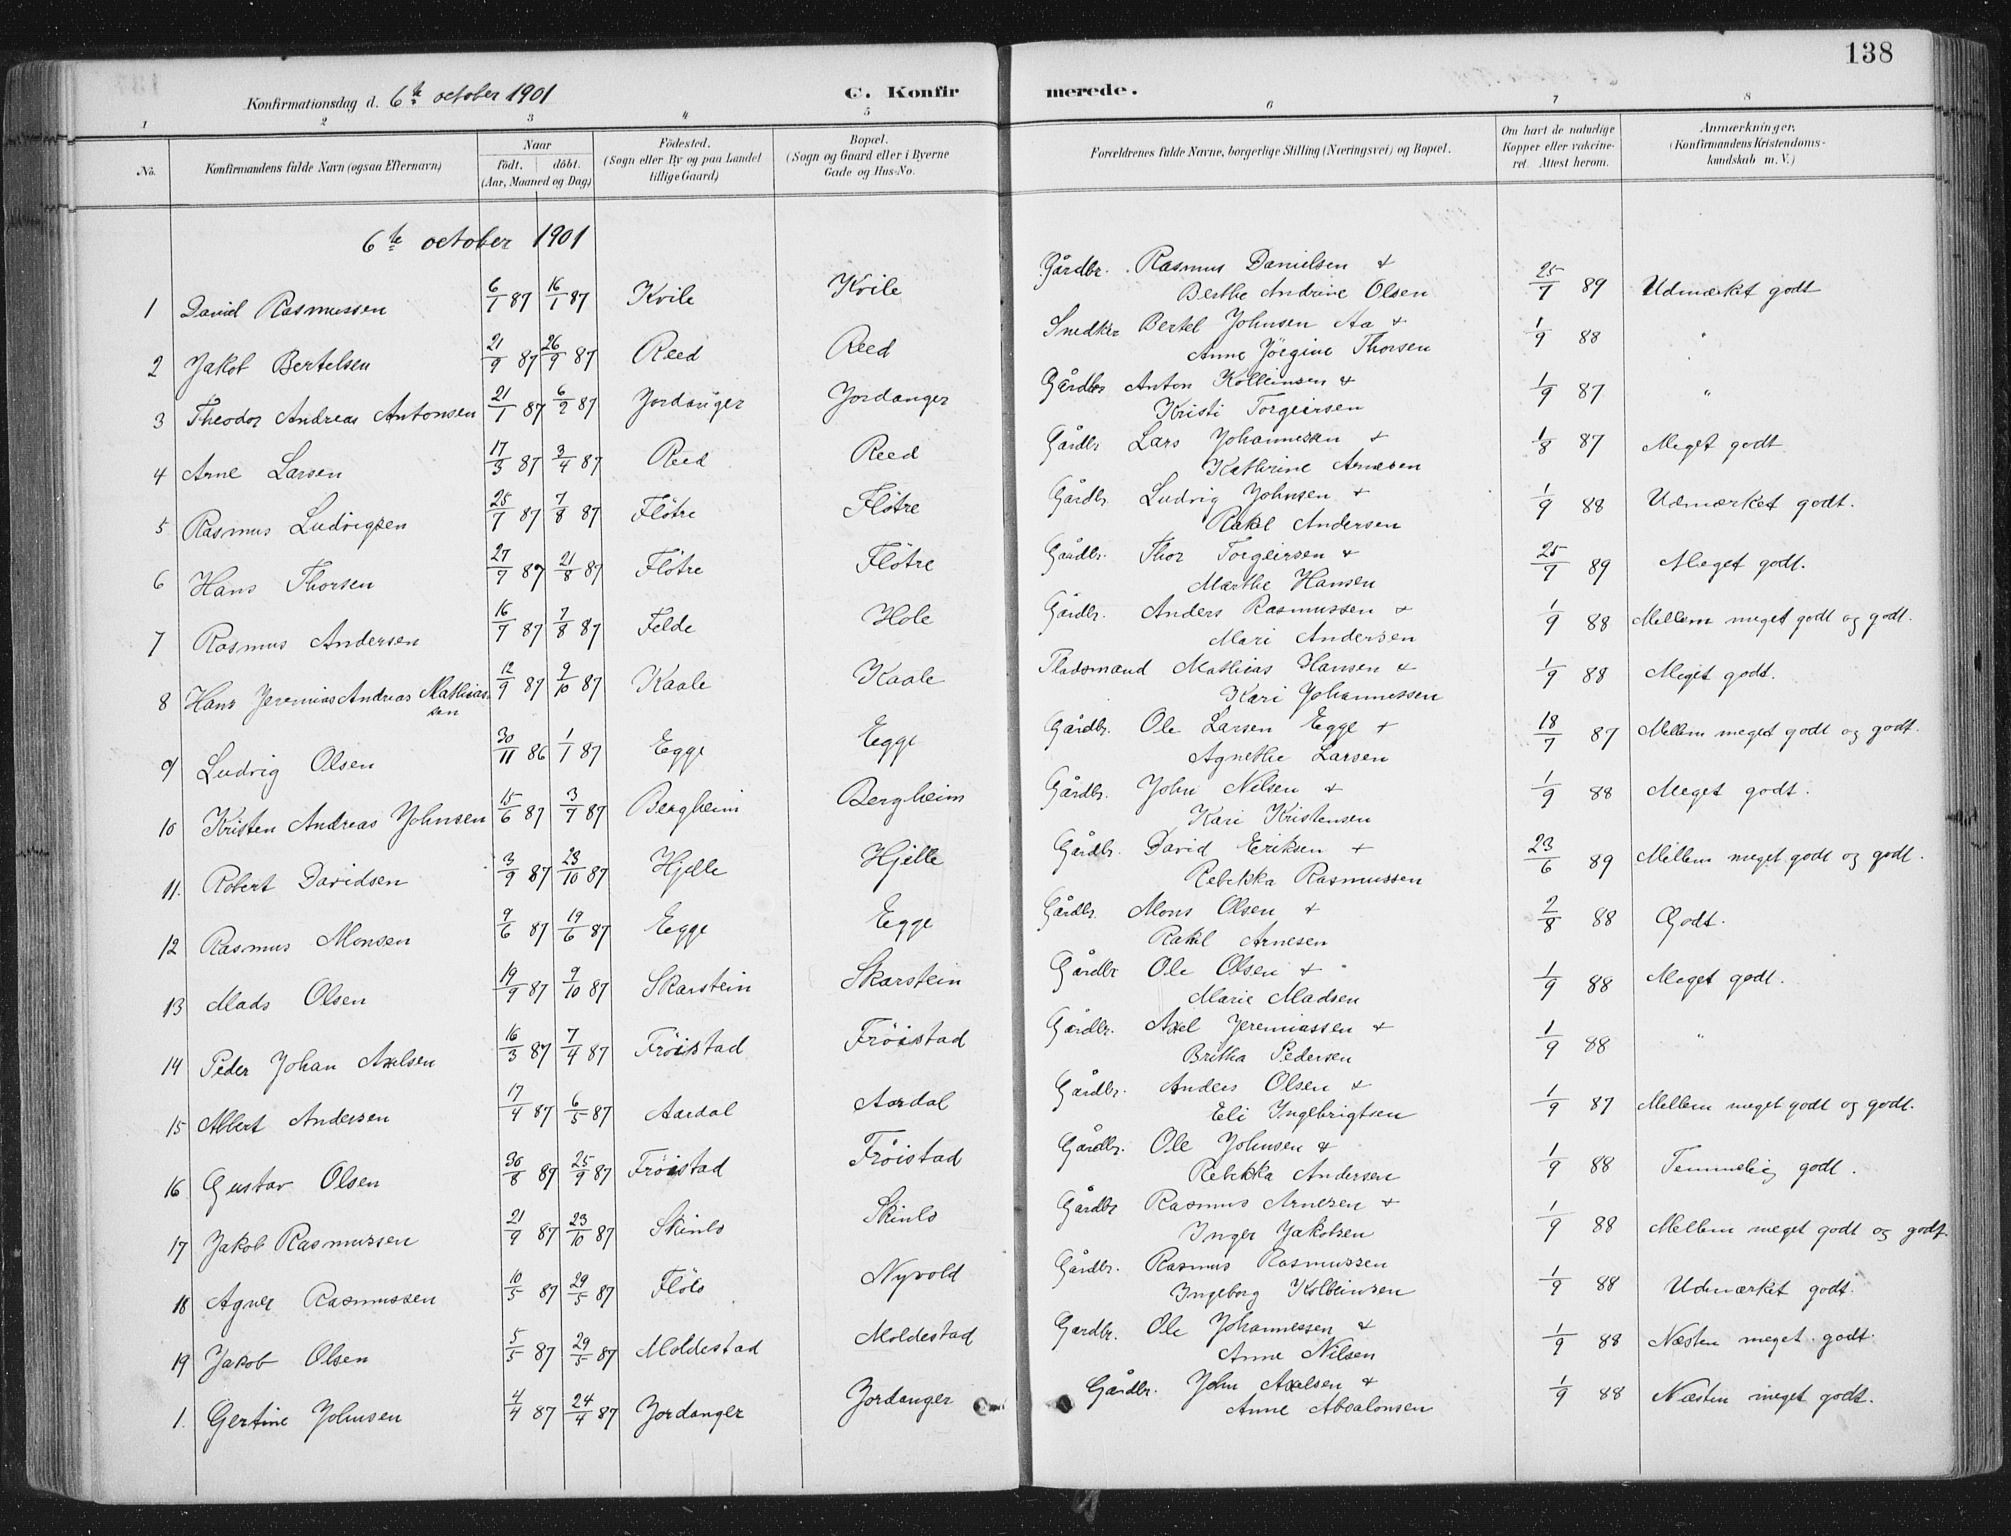 138
Konfirmationsdag d. 6te october 1901 C. Konfirmerede.
1 2 3 4 5 6 7 8
No. Konfirmandens fulde Navn (ogsaa Efternavn) Naar födt. döbt. (Aar, Maaned og Dag) Födested. (Sogn eller By og paa Landet tillige Gaard) Bopæl. (Sogn og Gaard eller i Byerne Gade og Hus-No. Forældrenes fulde Navne, borgerlige Stilling (Næringsvei) og Bopæl. Om havt de naturlige Kopper eller vakcineret. Attest herom. Anmærkninger. (Konfirmandens Kristendomskundskab m. V.)
6te october 1901
1 Daniel Rasmussen 6/1 87 16/1 87 Kvile Kvile Gårdbr. Rasmus Danielsen & 25/7 89 Udmærket godt
Berthe Andrine Olsen
2 Jakob Bertelsen 21/9 87 26/9 87 Reed Reed Snedker Bertel Johnsen Aa & 1/9 88 "
Anne Jörgine Thorsen
3 Theodor Andreas Antonsen 21/1 87 6/2 87 Jordanger Jordanger Gårdbr Anton Kolbeinsen & 1/9 87 "
Kristi Torgeirsen
4 Arne Larsen 17/3 87 3/4 87 Reed Reed Gårdbr Lars Johannessen & 1/8 87 Meget godt
Kathrine Arnesen
5 Rasmus Ludvigsen 25/7 87 7/8 87 Flötre Flötre Gårdbr. Ludvig Johnsen & 1/9 88 Udmærket godt.
Rakel Andersen
6 Hans Thorsen 27/7 87 21/8 87 Flötre Flötre Gårdbr. Thor Torgeirsen & 25/7 89 Meget godt.
Marthe Hansen
7 Rasmus Andersen 16/7 87 7/8 87 Felde Hole Gårdbr. Anders Rasmussen & 1/9 88 Mellem meget godt og godt.
Mari Andersen
8 Hans Jeremias Andreas Mathiassen 12/9 87 9/10 87 Kaale Kaale Pladsmand Mathias Hansen & 1/9 88 Meget godt.
Kari Johannessen
9 Ludvig Olsen 30/11 86 1/1 87 Egge Egge Gårdbr. Ole Larsen Egge & 18/7 87 Mellem meget godt og godt.
Agnethe Larsen
10 Kristen Andreas Johnsen 15/6 87 3/7 87 Bergheim Bergheim Gårdbr. John Nilsen & 1/9 88 Meget godt.
Kari Kristensen
11. Robert Davidsen 3/9 87 23/10 87 Hjelle Hjelle Gårdbr. David Eriksen & 23/6 89 Mellem meget godt og godt.
Rebekka Rasmussen
12 Rasmus Monsen 9/6 87 19/6 87 Egge Egge Gårdbr. Mons Olsen & 2/8 88 Godt.
Rakel Arnesen
13 Mads Olsen 19/9 87 9/10 87 Skarstein Skarstein Gårdbr Ole Olsen & 1/9 88 Meget godt.
Marie Madsen
14 Peder Johan Axelsen 16/3 87 7/4 87 Fröistad Fröistad Gårdbr. Axel Jeremiassen & 1/9 88 "
Britha Pedersen
15 Albert Andersen 17/4 87 6/5 87 Aardal Aardal Gårdbr. Anders Olsen & 1/9 87 Mellem meget godt og godt.
Eli Ingebrigtsen
16 Gustav Olsen 30/8 87 25/9 87 Fröistad Fröistad Gårdbr. Ole Johnsen & 1/9 88 Temmelig godt.
Rebekka Andersen
17 Jakob Rasmussen 21/9 87 23/10 87 Skinlo Skinlo Gårdbr Rasmus Arnesen & 1/9 88 Mellem meget godt og godt
Inger Jakobsen
18 Agner Rasmussen 10/5 87 29/5 87 Flölo Nyvold Gårdbr. Rasmus Rasmussen 1/9 88 Udmærket godt.
Ingeborg Kolbeinsen
19 Jakob Olsen 5/5 87 29/5 87 Moldestad Moldestad Gardbr. Ole Johannessen & 1/9 88 Næsten meget godt.
Anne Nilsen
1. Gertine Johnsen 4/4 87 24/4 87 Jordanger Jordanger Gårdbr. John Axelsen & 1/9 88 Næsten meget godt.
Anne Absalonsen